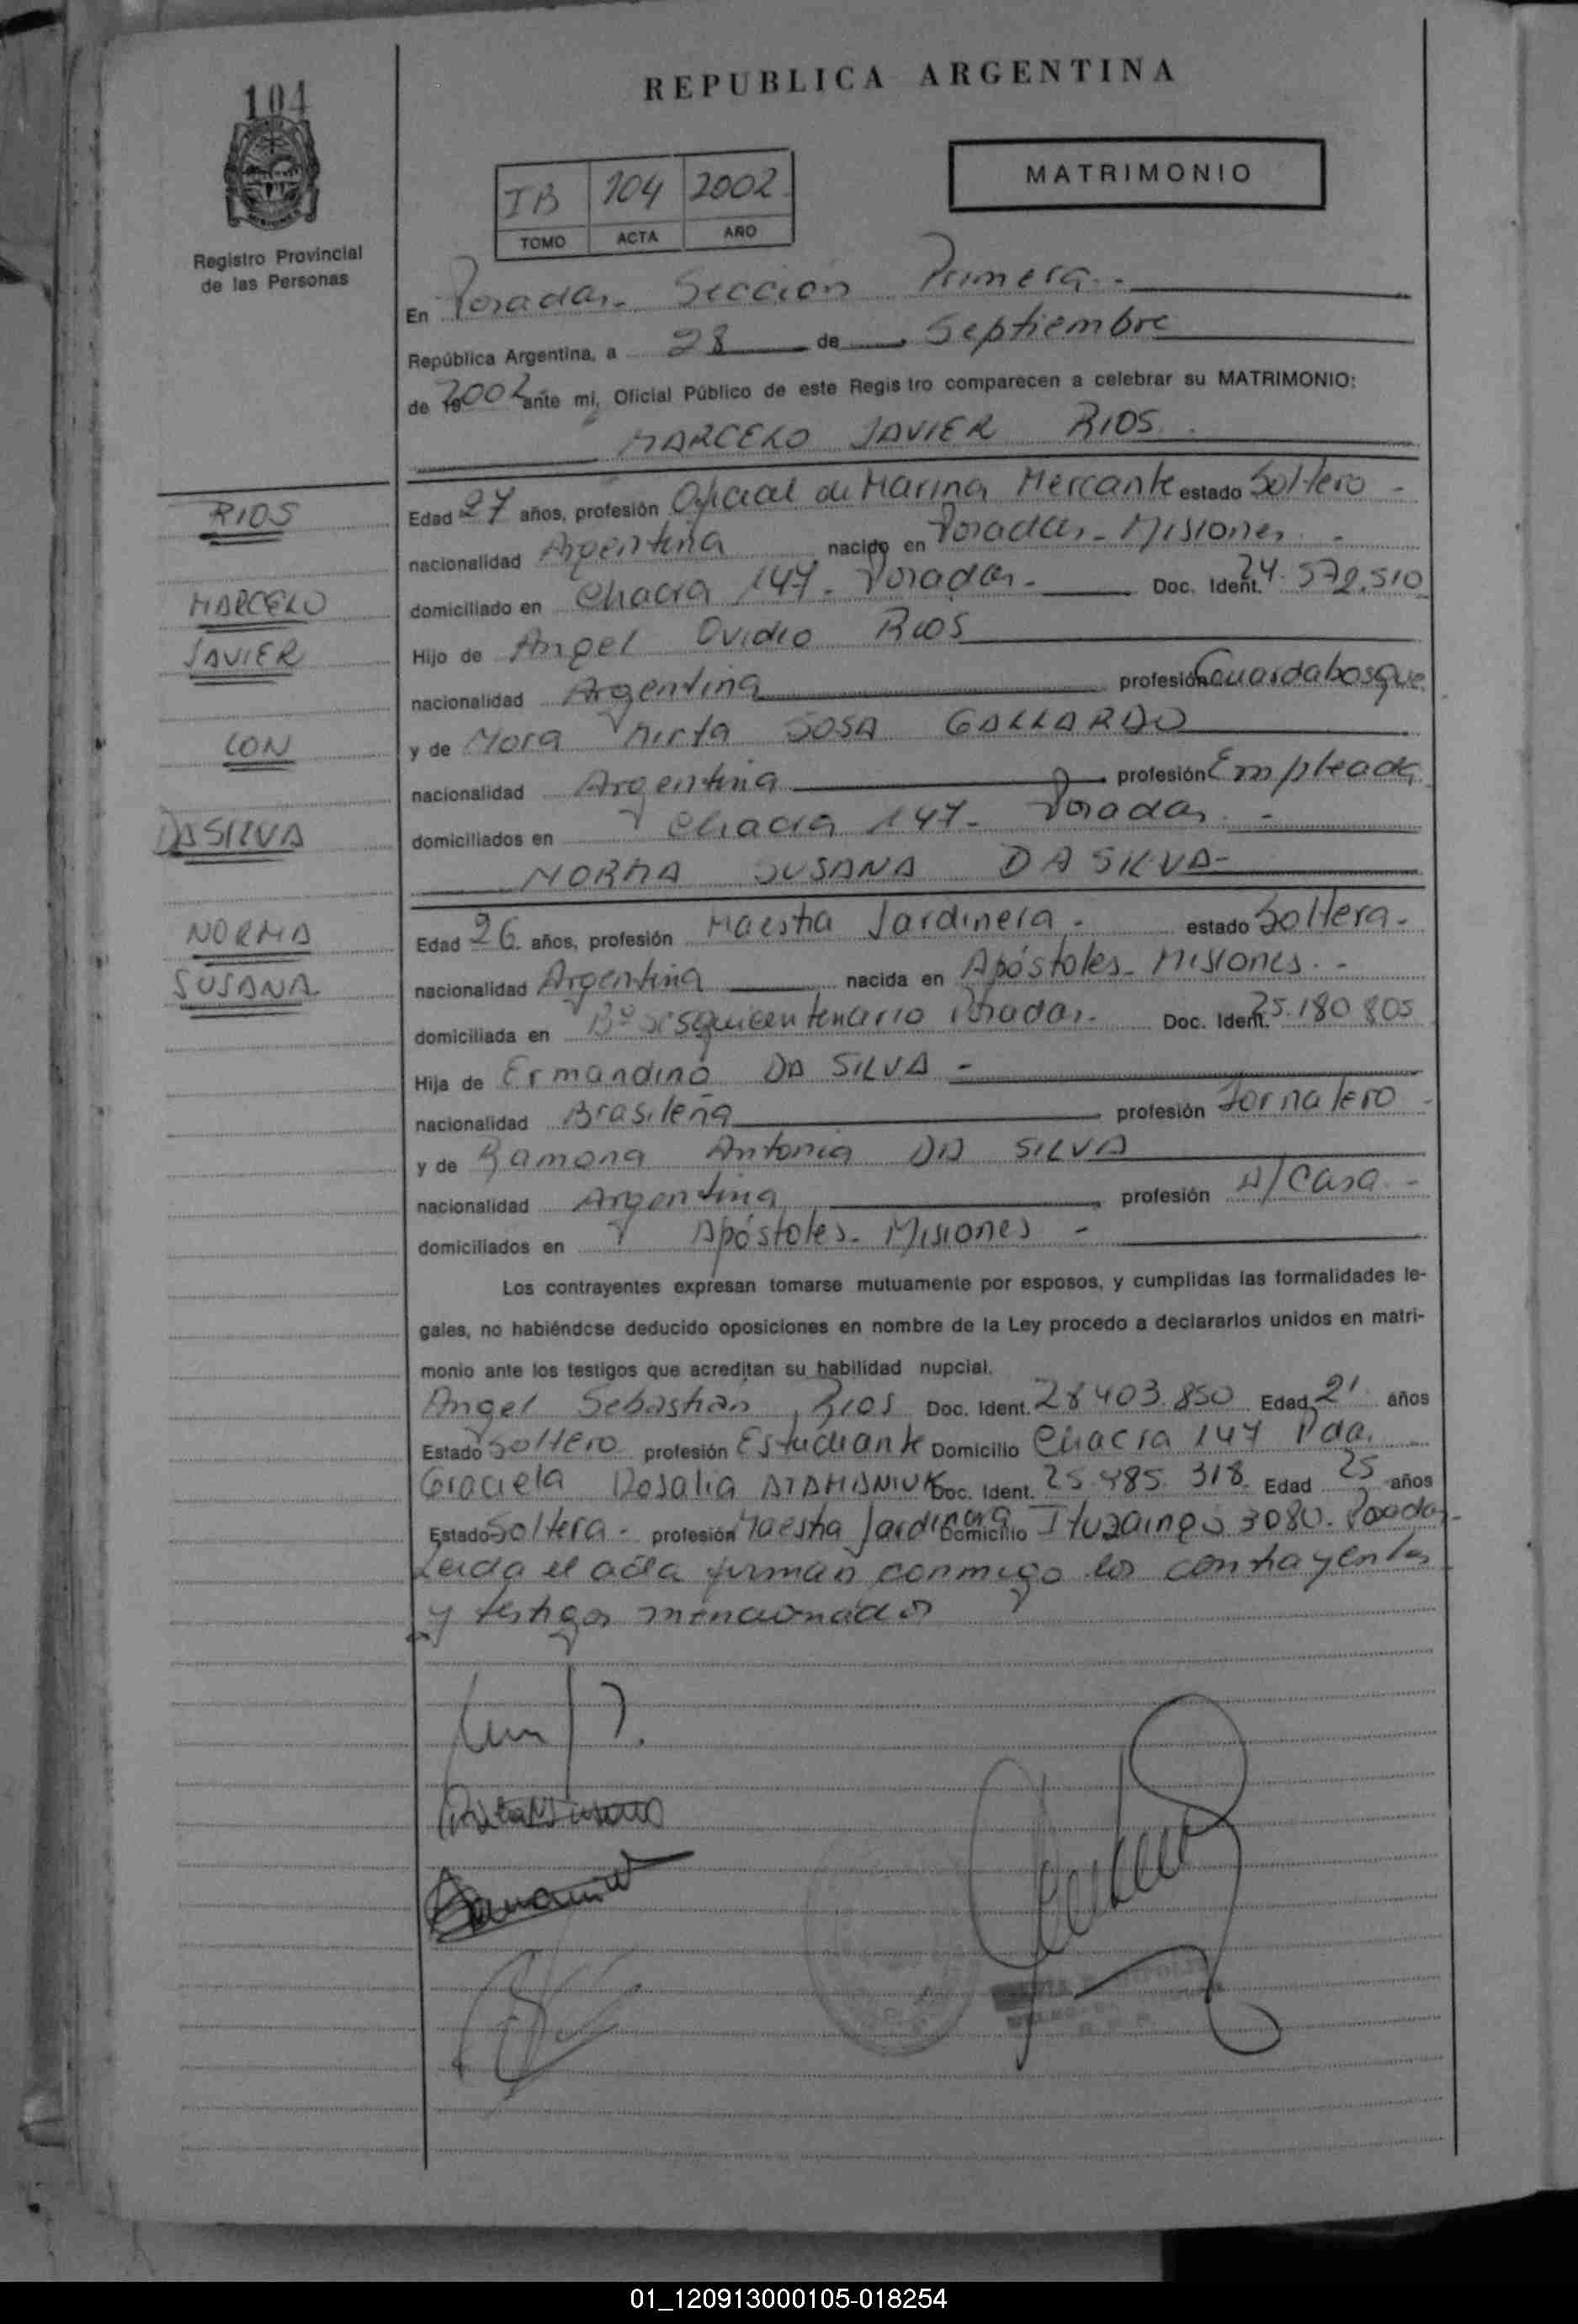 104
REPUBLICA ARGENTINA
MATRIMONIO
IB 104 2002
TOMO ACTA AÑO
Registro Provincial
de las Personas
En Posadas. Sección Primera.-
República Argentina, a 28 de Septiembre
de 19 2002 ante mí, Oficial Público de este Registro comparecen a celebrar su MATRIMONIO:
MARCELO JAVIER RIOS.
RIOS
MARCELO
JAVIER
CON
DA SILVA
NORMA
SUSANA
Edad 27 años, profesión Oficial de Marina Mercante estado Soltero -
nacionalidad Argentina nacido en Posadas - Misiones. -
domiciliado en Chacra 147 - Posadas. - Doc. Ident. 24.572.510
Hijo de Angel Ovidio RIOS
nacionalidad Argentina profesión Guardabosque
y de Nora Mirta SOSA GALLARDO
nacionalidad Argentina profesión Empleada
domiciliados en Chacra 147 - Posadas. -
NORMA SUSANA DA SILVA -
Edad 26 años, profesión Maestra Jardinera. - estado Soltera. -
nacionalidad Argentina nacida en Apóstoles - Misiones. -
domiciliada en Bº Sesquicentenario Posadas. - Doc. Ident. 25.180.805
Hija de Ermandino DA SILVA -
nacionalidad Brasileña profesión Jornalero -
y de Ramona Antonia DA SILVA
nacionalidad Argentina profesión A/Casa -
domiciliados en Apóstoles - Misiones -
Los contrayentes expresan tomarse mutuamente por esposos, y cumplidas las formalidades le-
gales, no habiéndose deducido oposiciones en nombre de la Ley procedo a declararlos unidos en matri-
monio ante los testigos que acreditan su habilidad nupcial.
Angel Sebastián RIOS Doc. Ident. 28.403.850 Edad 21 años
Estado Soltero profesión Estudiante Domicilio Chacra 147 Pdas.
Graciela Rosalia ATAMANIUK Doc. Ident. 25.485.318 Edad 25 años
Estado Soltera - profesión Maestra Jardinera Domicilio Ituzaingó 3080. Posadas -
Leida el acta firman conmigo los contrayentes
y testigos mencionados
01_120913000105-018254